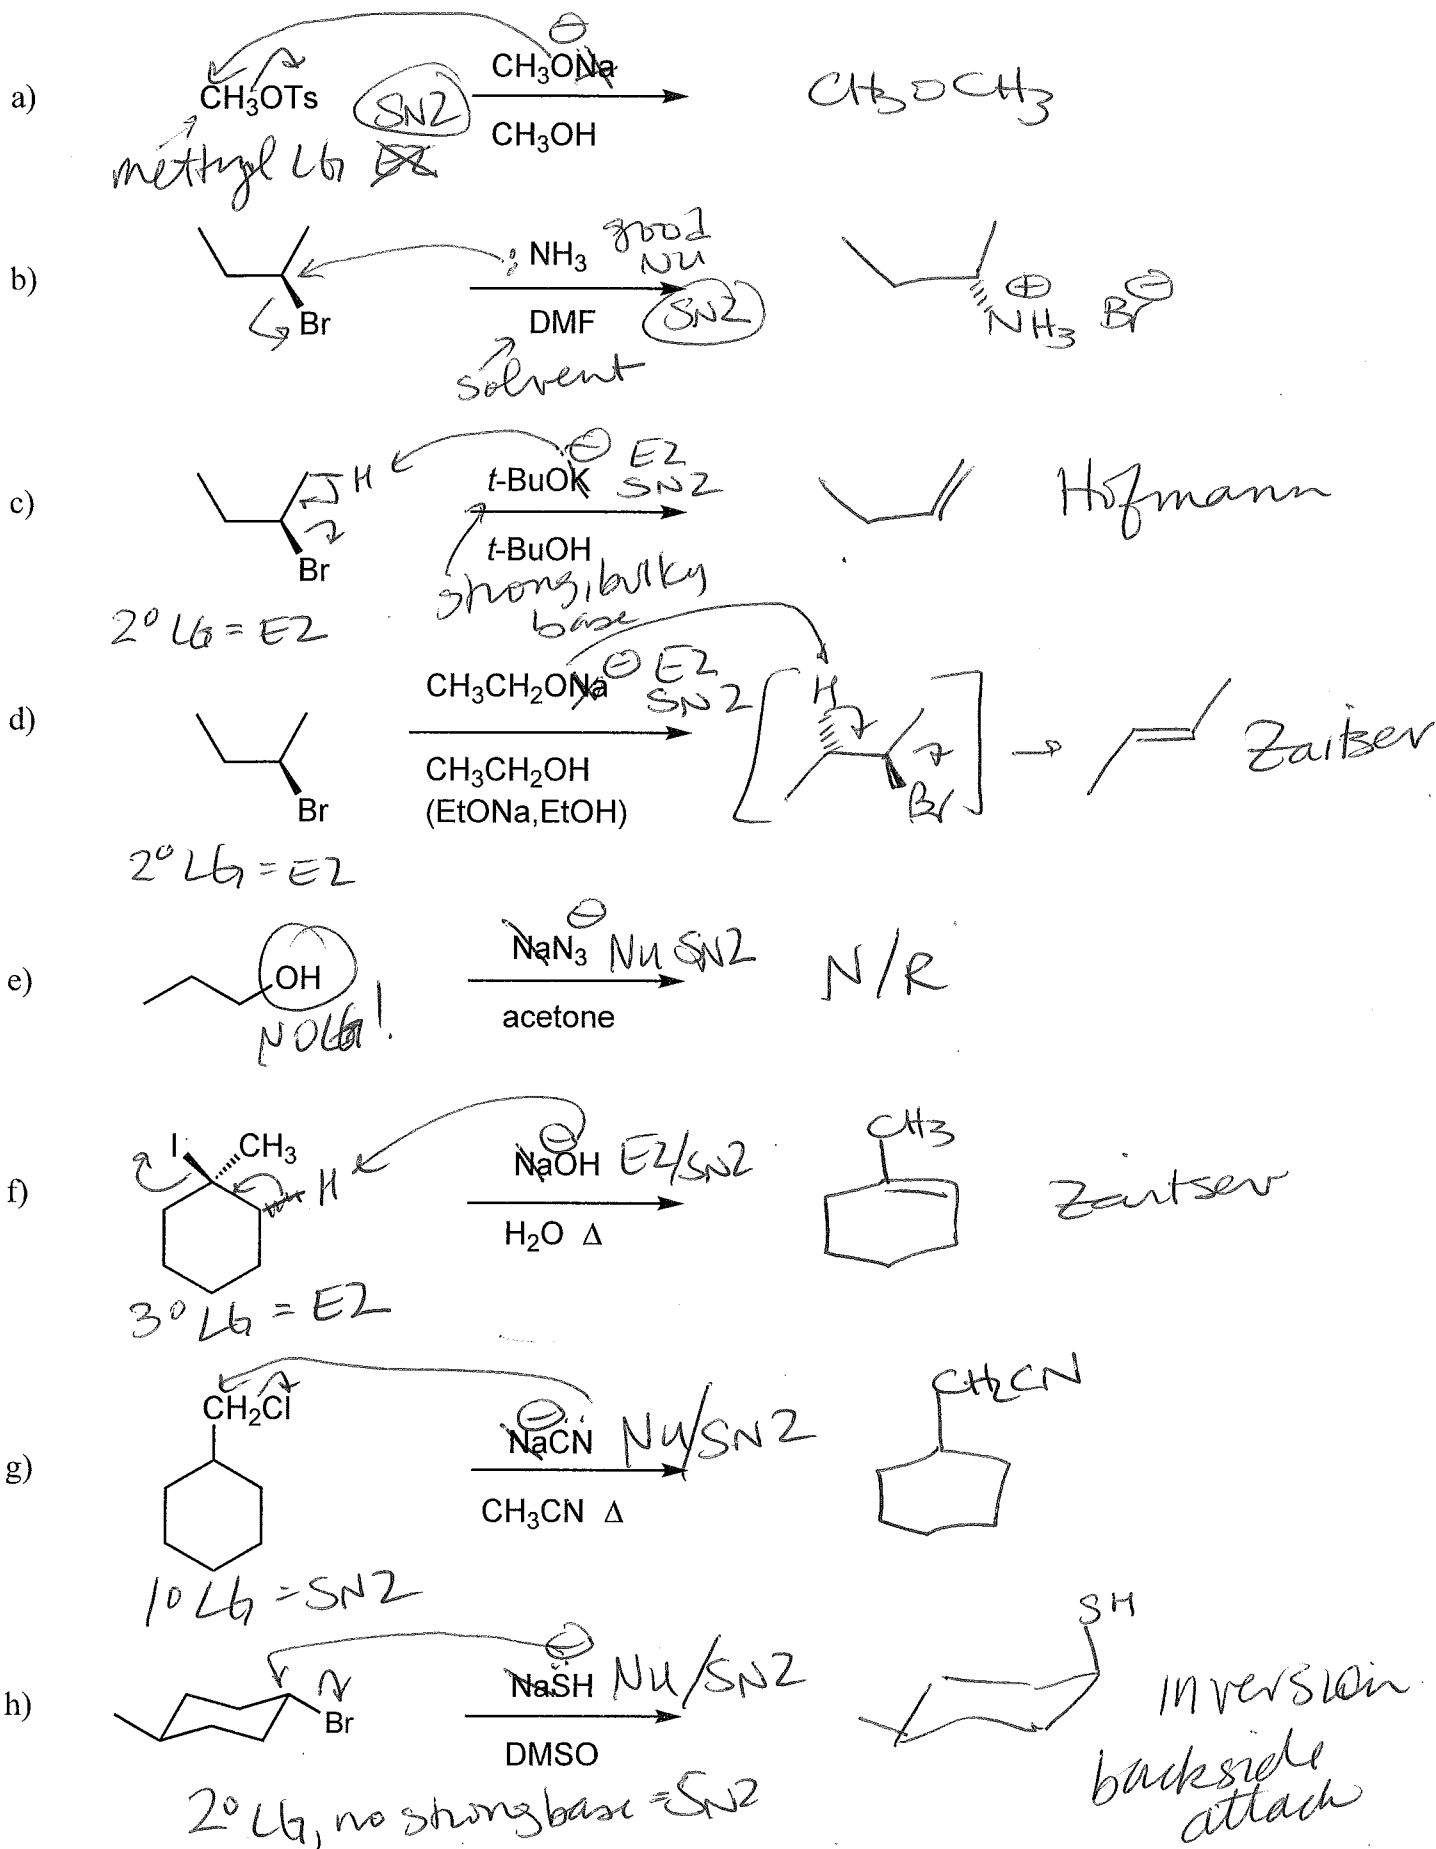 a)
CH3OTs
SN2
CH3ONa ⊖
CH3OH
CH3OCH3
methyl LG E2
b)
Br
:NH3
good
NU
DMF
SN2
solvent
⊕
NH3 Br⊖
c)
H
Br
t-BuOK ⊖
E2
SN2
t-BuOH
strong, bulky
base
Hofmann
2° LG = E2
d)
Br
CH3CH2ONa ⊖
E2
SN2
CH3CH2OH
(EtONa,EtOH)
H
Br
Zaitsev
2° LG = E2
e)
OH
NO LG!
NaN3 ⊖
Nu SN2
acetone
N/R
f)
I
CH3
H
NaOH ⊖
E2/SN2
H2O Δ
CH3
Zaitsev
3° LG = E2
g)
CH2Cl
NaCN ⊖
Nu/SN2
CH3CN Δ
CH2CN
1° LG = SN2
h)
Br
NaSH ⊖
Nu/SN2
DMSO
SH
inversion
backside
attack
2° LG, no strong base = SN2